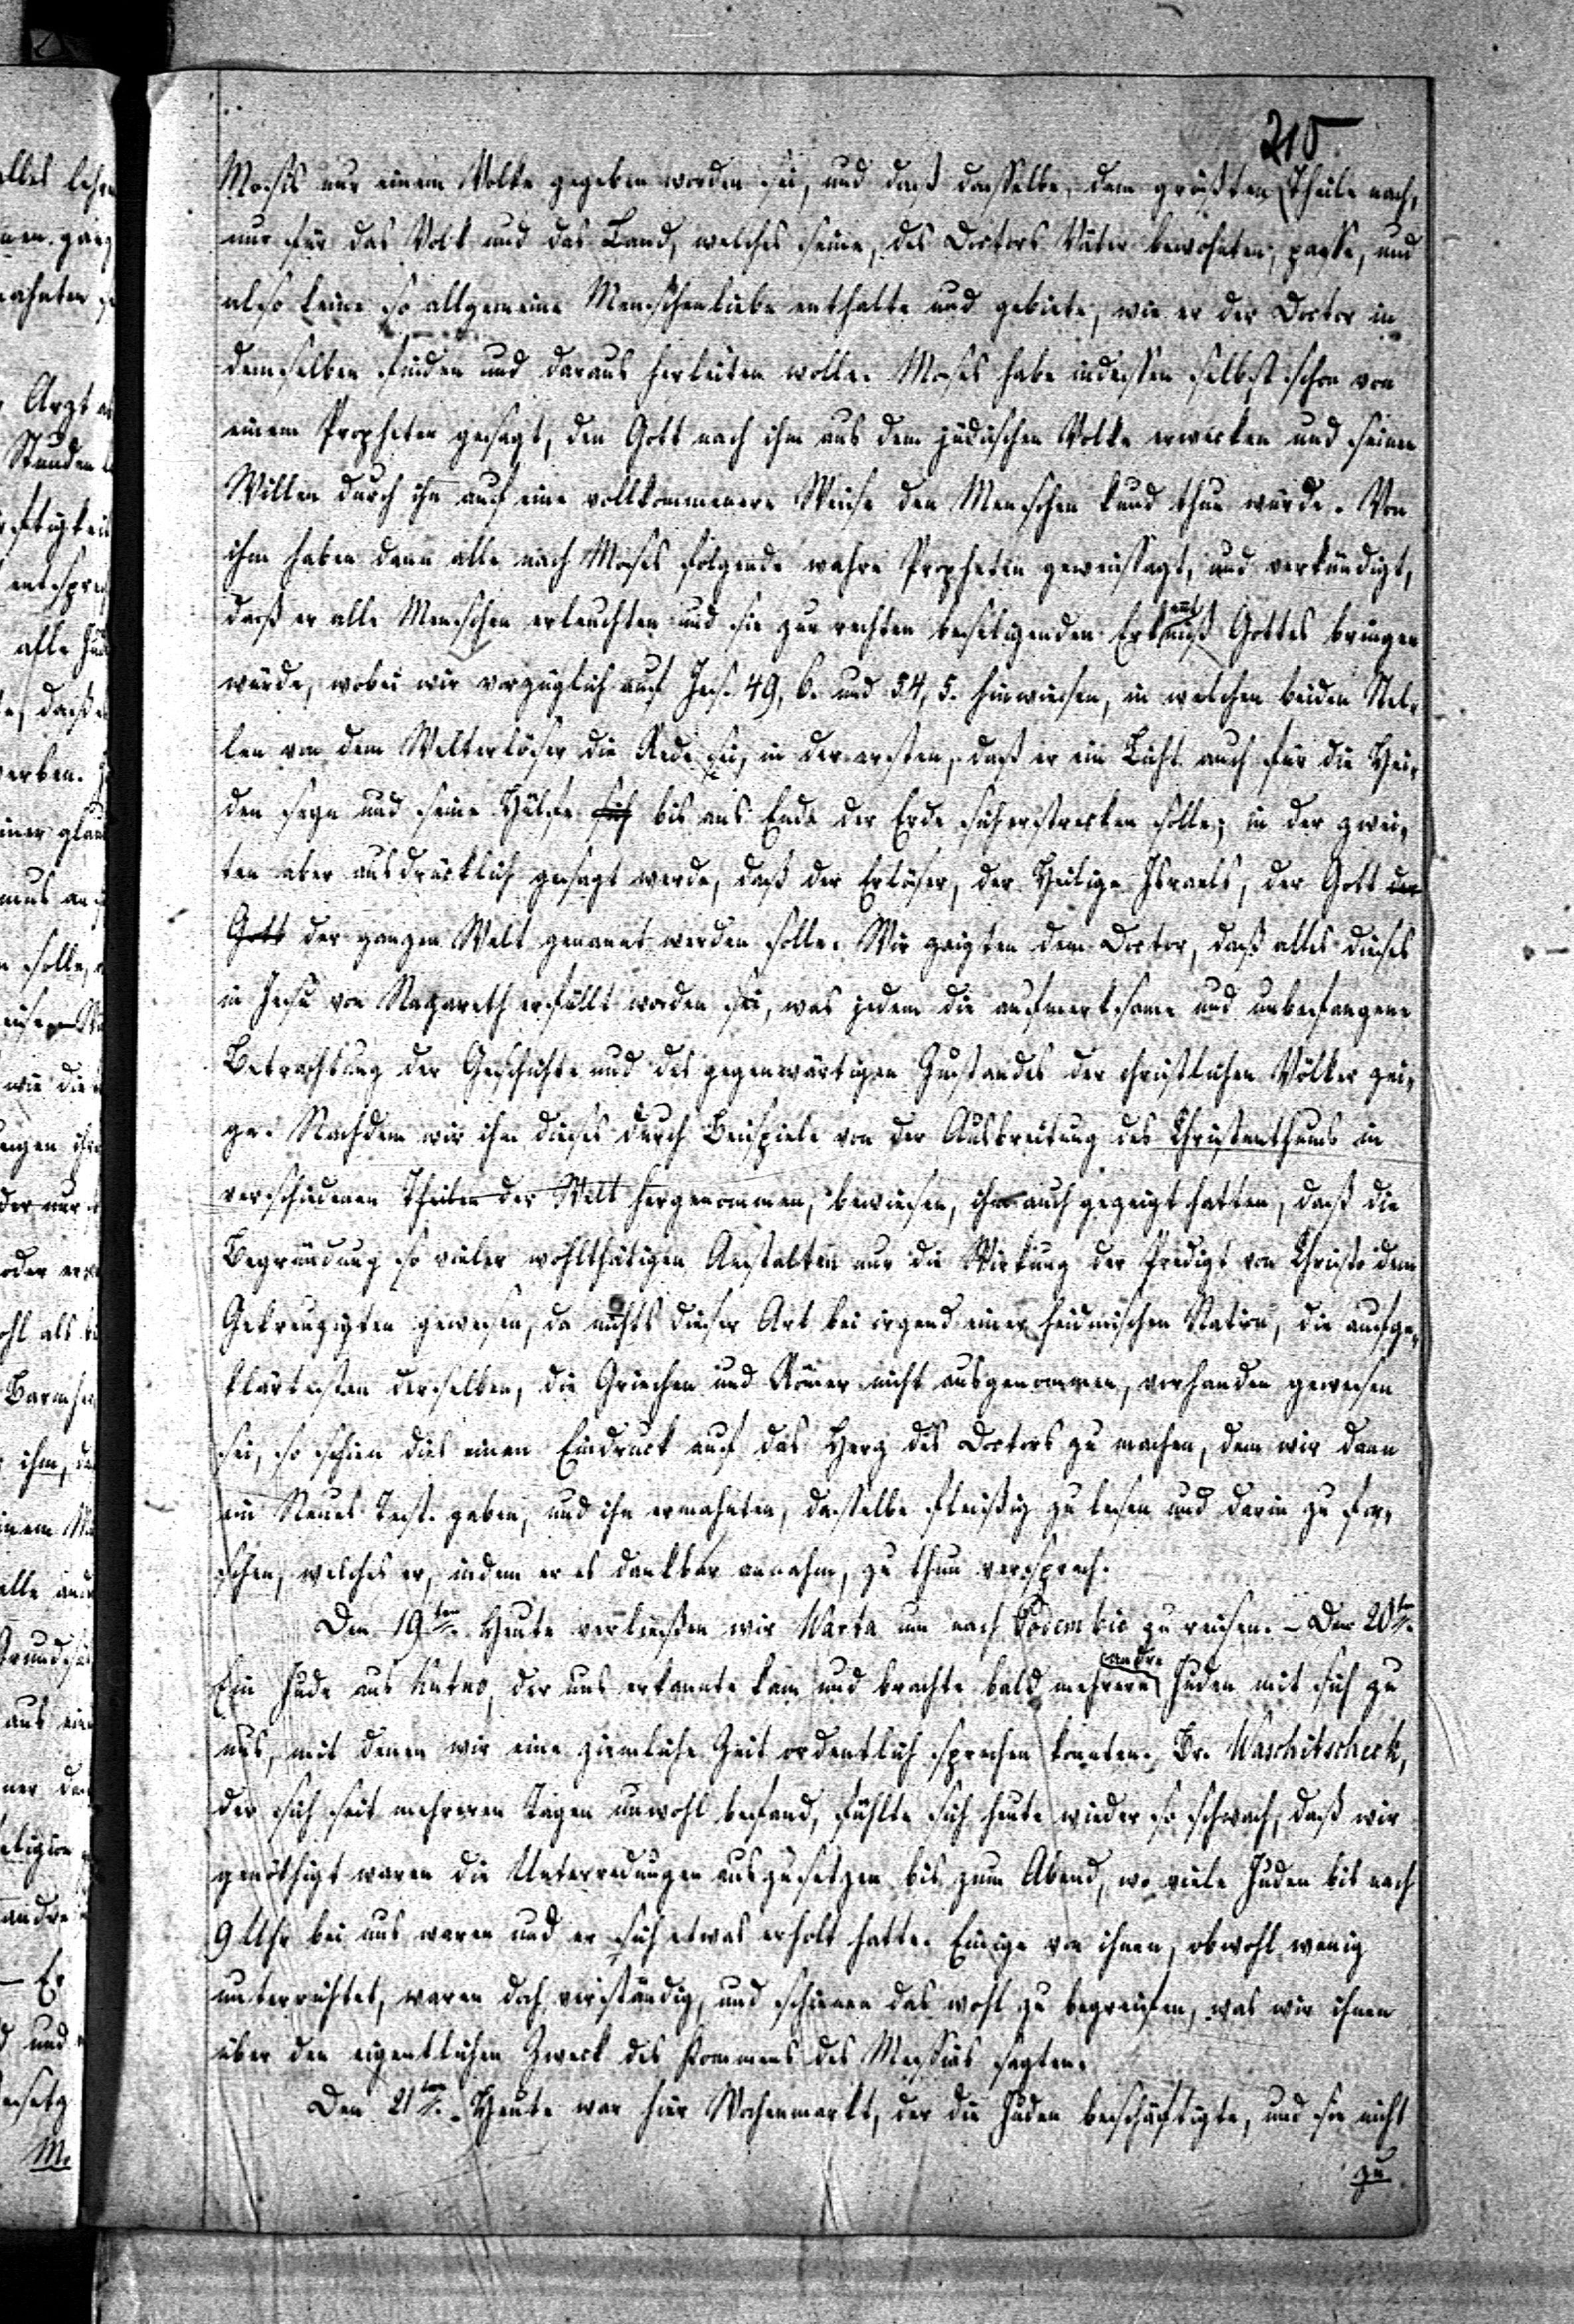 210
Mosis nur einem Volke gegeben worden sei, und daß dasselbe, dem größten Theile nach,
nur für das Volk und das Land, welches seine, des Doctors Väter bewohnten, passe, und
also keine so allgemeine Menschenliebe enthalte und gebiete, wie er der Doctor in
demselben finden und daraus herleiten wolle. Moses habe indessen selbst schon von
einem Propheten gesagt, den Gott nach ihm aus dem jüdischen Volke erwecken und seinen
Willen durch ihn auf eine vollkommenere Weise den Menschen kund thun würde. Von
ihm haben denn alle nach Moses folgende wahre Propheten geweissagt, und verkündigt,
daß er alle Menschen erleuchten und sie zur rechten beseligenden Erkenntniß Gottes bringen
würde, wobei wir vorzüglich auf Jes. 49, 6. und 54, 5. hinwiesen, in welchen beiden Stel-
len von dem Welterlöser die Rede sei, in der ersten, daß er ein Licht auch für die Hei-
den seyn und seine Hülfe sich bis ans Ende der Erde sich erstrecken solle; in der zwei-
ten aber ausdrücklich gesagt werde, daß der Erlöser, der Heilige Israels, der Gott der
Gott der ganzen Welt genannt werden solle. Wir zeigten dem Doctor, daß alles dieses
in Jesu von Nazareth erfüllt worden sei, was jedem die aufmerksame und unbefangene
Betrachtung der Geschichte und des gegenwärtigen Zustandes der christlichen Völker zei-
ge. Nachdem wir ihm dieses durch Beispiele von der Ausbreitung des Christenthums in
verschiedenen Theilen der Welt hergenommen, bewiesen, ihm auch gezeigt hatten, daß die
Begründung so vieler wohlthätigen Anstalten nur die Wirkung der Predigt von Christo dem
Gekreuzigten gewesen, da nichts dieser Art bei irgend einer heidnischen Nation, die aufge-
klärtesten derselben, die Griechen und Römer nicht ausgenommen, vorhanden gewesen
sei, so schien dies einen Eindruck auf das Herz des Doctors zu machen, dem wir dann
ein Neues Test. gaben, und ihn ermahnten, dasselbe fleißig zu lesen und darin zu for-
schen, welches er, indem er es dankbar annahm, zu thun versprach.
Den 19ten. Heute verließen wir Warta um nach Podembic zu reisen. – Den 20ten.
Ein Jude aus Kutno, der uns erkannte kam und brachte bald mehrere andre Juden mit sich zu
uns, mit denen wir eine ziemliche Zeit ordentlich sprechen konnten. Br. Waschitscheck,
der sich seit mehreren Tagen unwohl befand, fühlte sich heute wieder so schwach, daß wir
genöthigt waren die Unterredungen auszusetzen bis zum Abend, wo viele Juden bis nach
9 Uhr bei uns waren und er sich etwas erholt hatte. Einige von ihnen, obwohl wenig
unterrichtet, waren doch verständig, und schienen das wohl zu begreifen, was wir ihnen
über den eigentlichen Zweck des Kommens des Messias sagten.
Den 21ten. Heute war hier Wochenmarkt, der die Juden beschäftigte, und sie nicht
zu